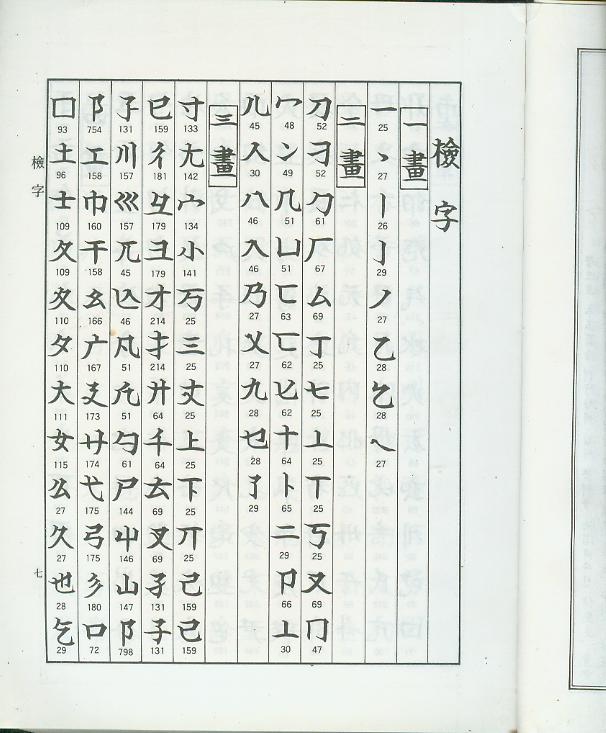 檢字
一畫
一 25 丶 27 丨 26 亅 29 丿 27 乙 28 28 ㇏ 27
二畫
刀 52 刁 52 勹 61 厂 67 厶 69 丁 25 七 25 丄 25 丅 25 丂 25 又 69 冂 47
冖 48 冫 49 几 51 凵 51 匚 63 匸 62 匕 62 十 64 卜 65 二 29 卩 66 亠 30
儿 45 人 30 八 46 入 46 乃 27 乂 27 九 28 乜 28 了 29
三畫
寸 133 尢 142 宀 134 小 141 万 25 三 25 丈 25 上 25 下 25 丌 25 己 159 已 159
巳 159 彳 181 彑 179 彐 179 才 214 扌 214 廾 64 千 64 69 叉 69 孑 131 孒 131
子 131 川 157 巛 157 兀 45 亾 46 凡 51 凢 51 勺 61 尸 144 屮 146 山 147 阝 798
阝 754 工 158 巾 160 干 158 幺 166 广 167 廴 173 廿 174 弋 175 弓 175 彡 180 口 72
囗 93 土 96 士 109 夂 109 夊 110 夕 110 大 111 女 115 么 27 久 27 也 28 乞 29
檢字
七